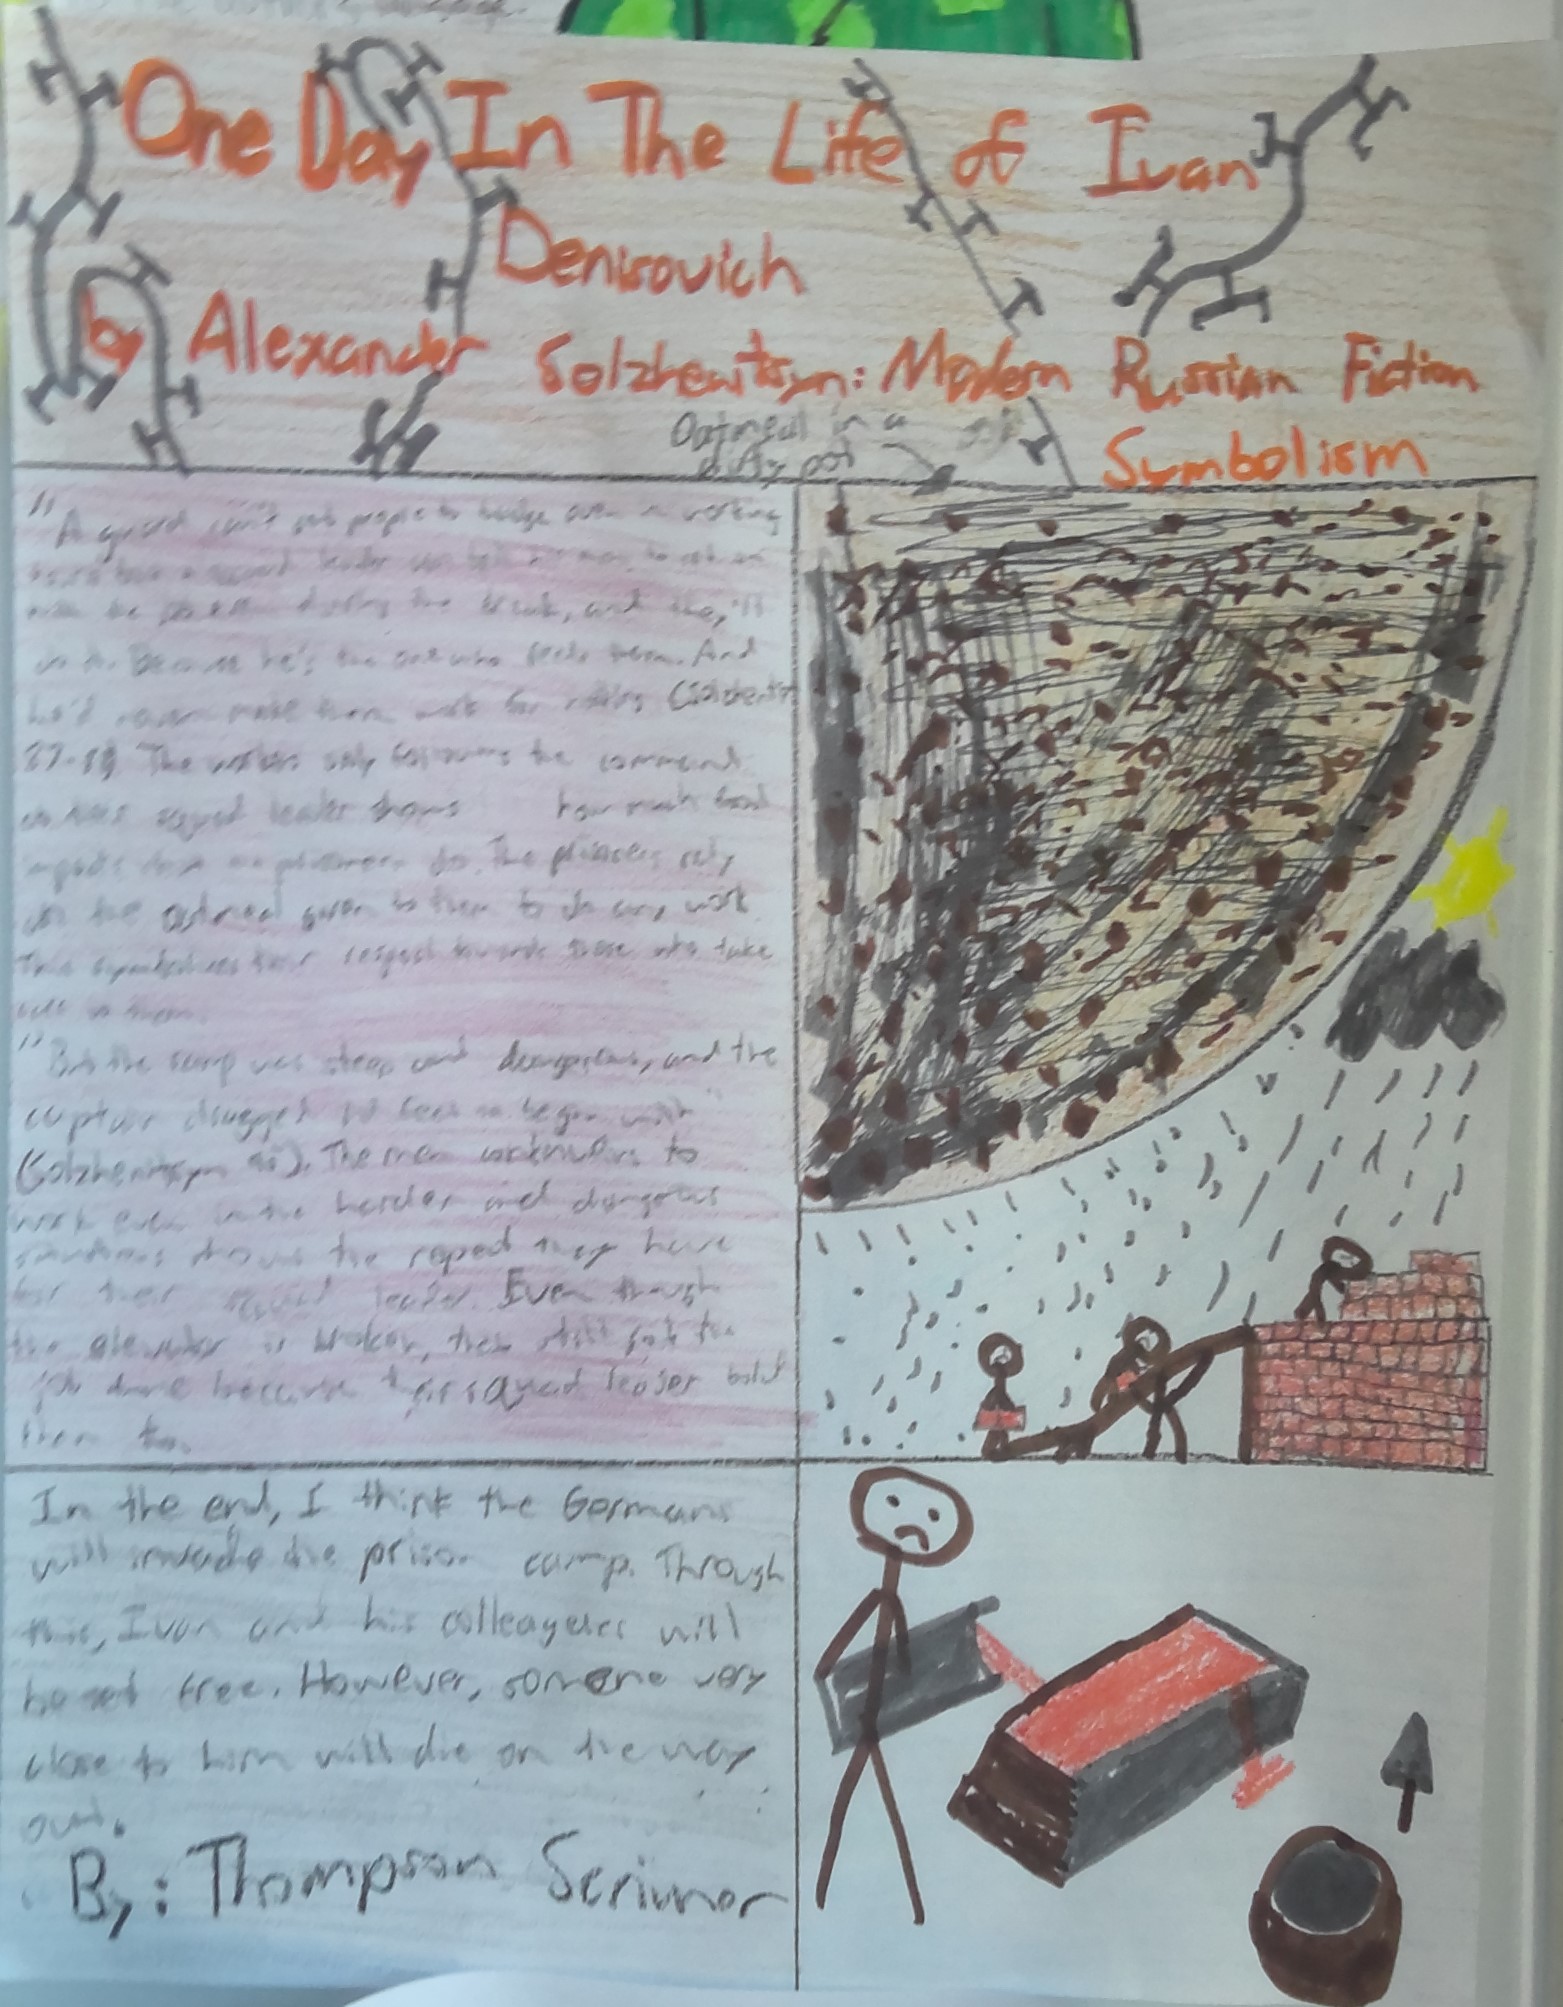 One Day In The Life of Ivan
Denisovich
by Alexander Solzhenitsyn: Modern Russian Fiction
Symbolism
Oatmeal in a
dirty pot
"A guard can't get people to budge even in working
hours but a squad leader can tell his men to
the during the break, and they'll
do it. Because he's the one who feeds them. And
he'd never make them work for nothing (Solzhenits
The workers only following the command
squad leader shows how much food
impacts The prisoners rely
on the oatmeal given to them to do any work
This symbolizes their respect towards those who take
"But the ramp was steep and dangerous, and the
captain dragged his feet to begin with"
(Solzhenitsyn 95). The men to
work even in the harder and dangerous
situations shows the they have
for their squad leader. Even though
the elevator is broken, they still got the
job done because their squad leader
them to.
In the end, I think the Germans
will invade the prison camp. Through
this, Ivan and his colleageues will
be set free. However, someone very
close to him will die on the way
out.
By: Thompson Scrivnor